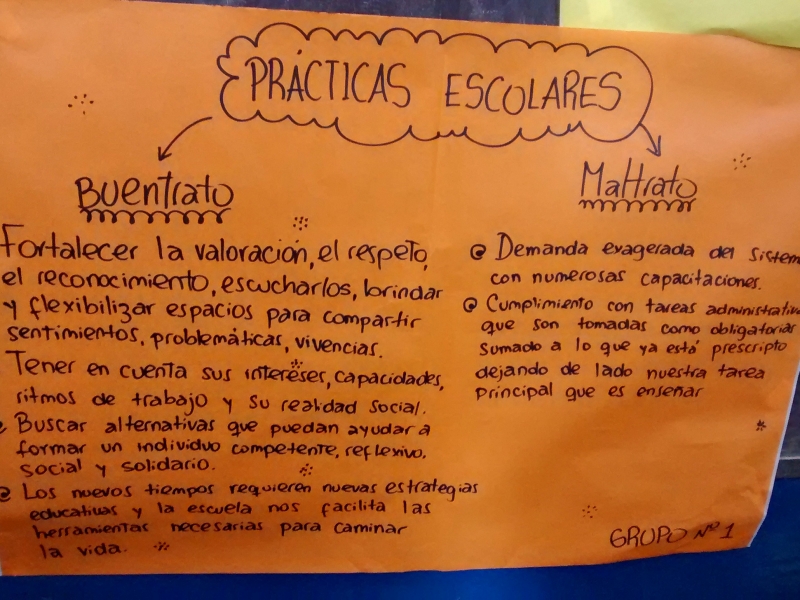 PRÁCTICAS ESCOLARES
Buentrato
Fortalecer la valoración, el respeto,
el reconocimiento, escucharlos, brindar
y flexibilizar espacios para compartir
sentimientos, problemáticas, vivencias.
Tener en cuenta sus intereses, capacidades,
ritmos de trabajo y su realidad social.
Buscar alternativas que puedan ayudar a
formar un individuo competente, reflexivo,
social y solidario.
Los nuevos tiempos requieren nuevas estrategias
educativas y la escuela nos facilita las
herramientas necesarias para caminar
la vida.
Maltrato
Demanda exagerada del sistem
con numerosas capacitaciones.
Cumplimiento con tareas administrativa
que son tomadas como obligatorias
sumado a lo que ya está prescripto
dejando de lado nuestra tarea
principal que es enseñar
GRUPO Nº 1